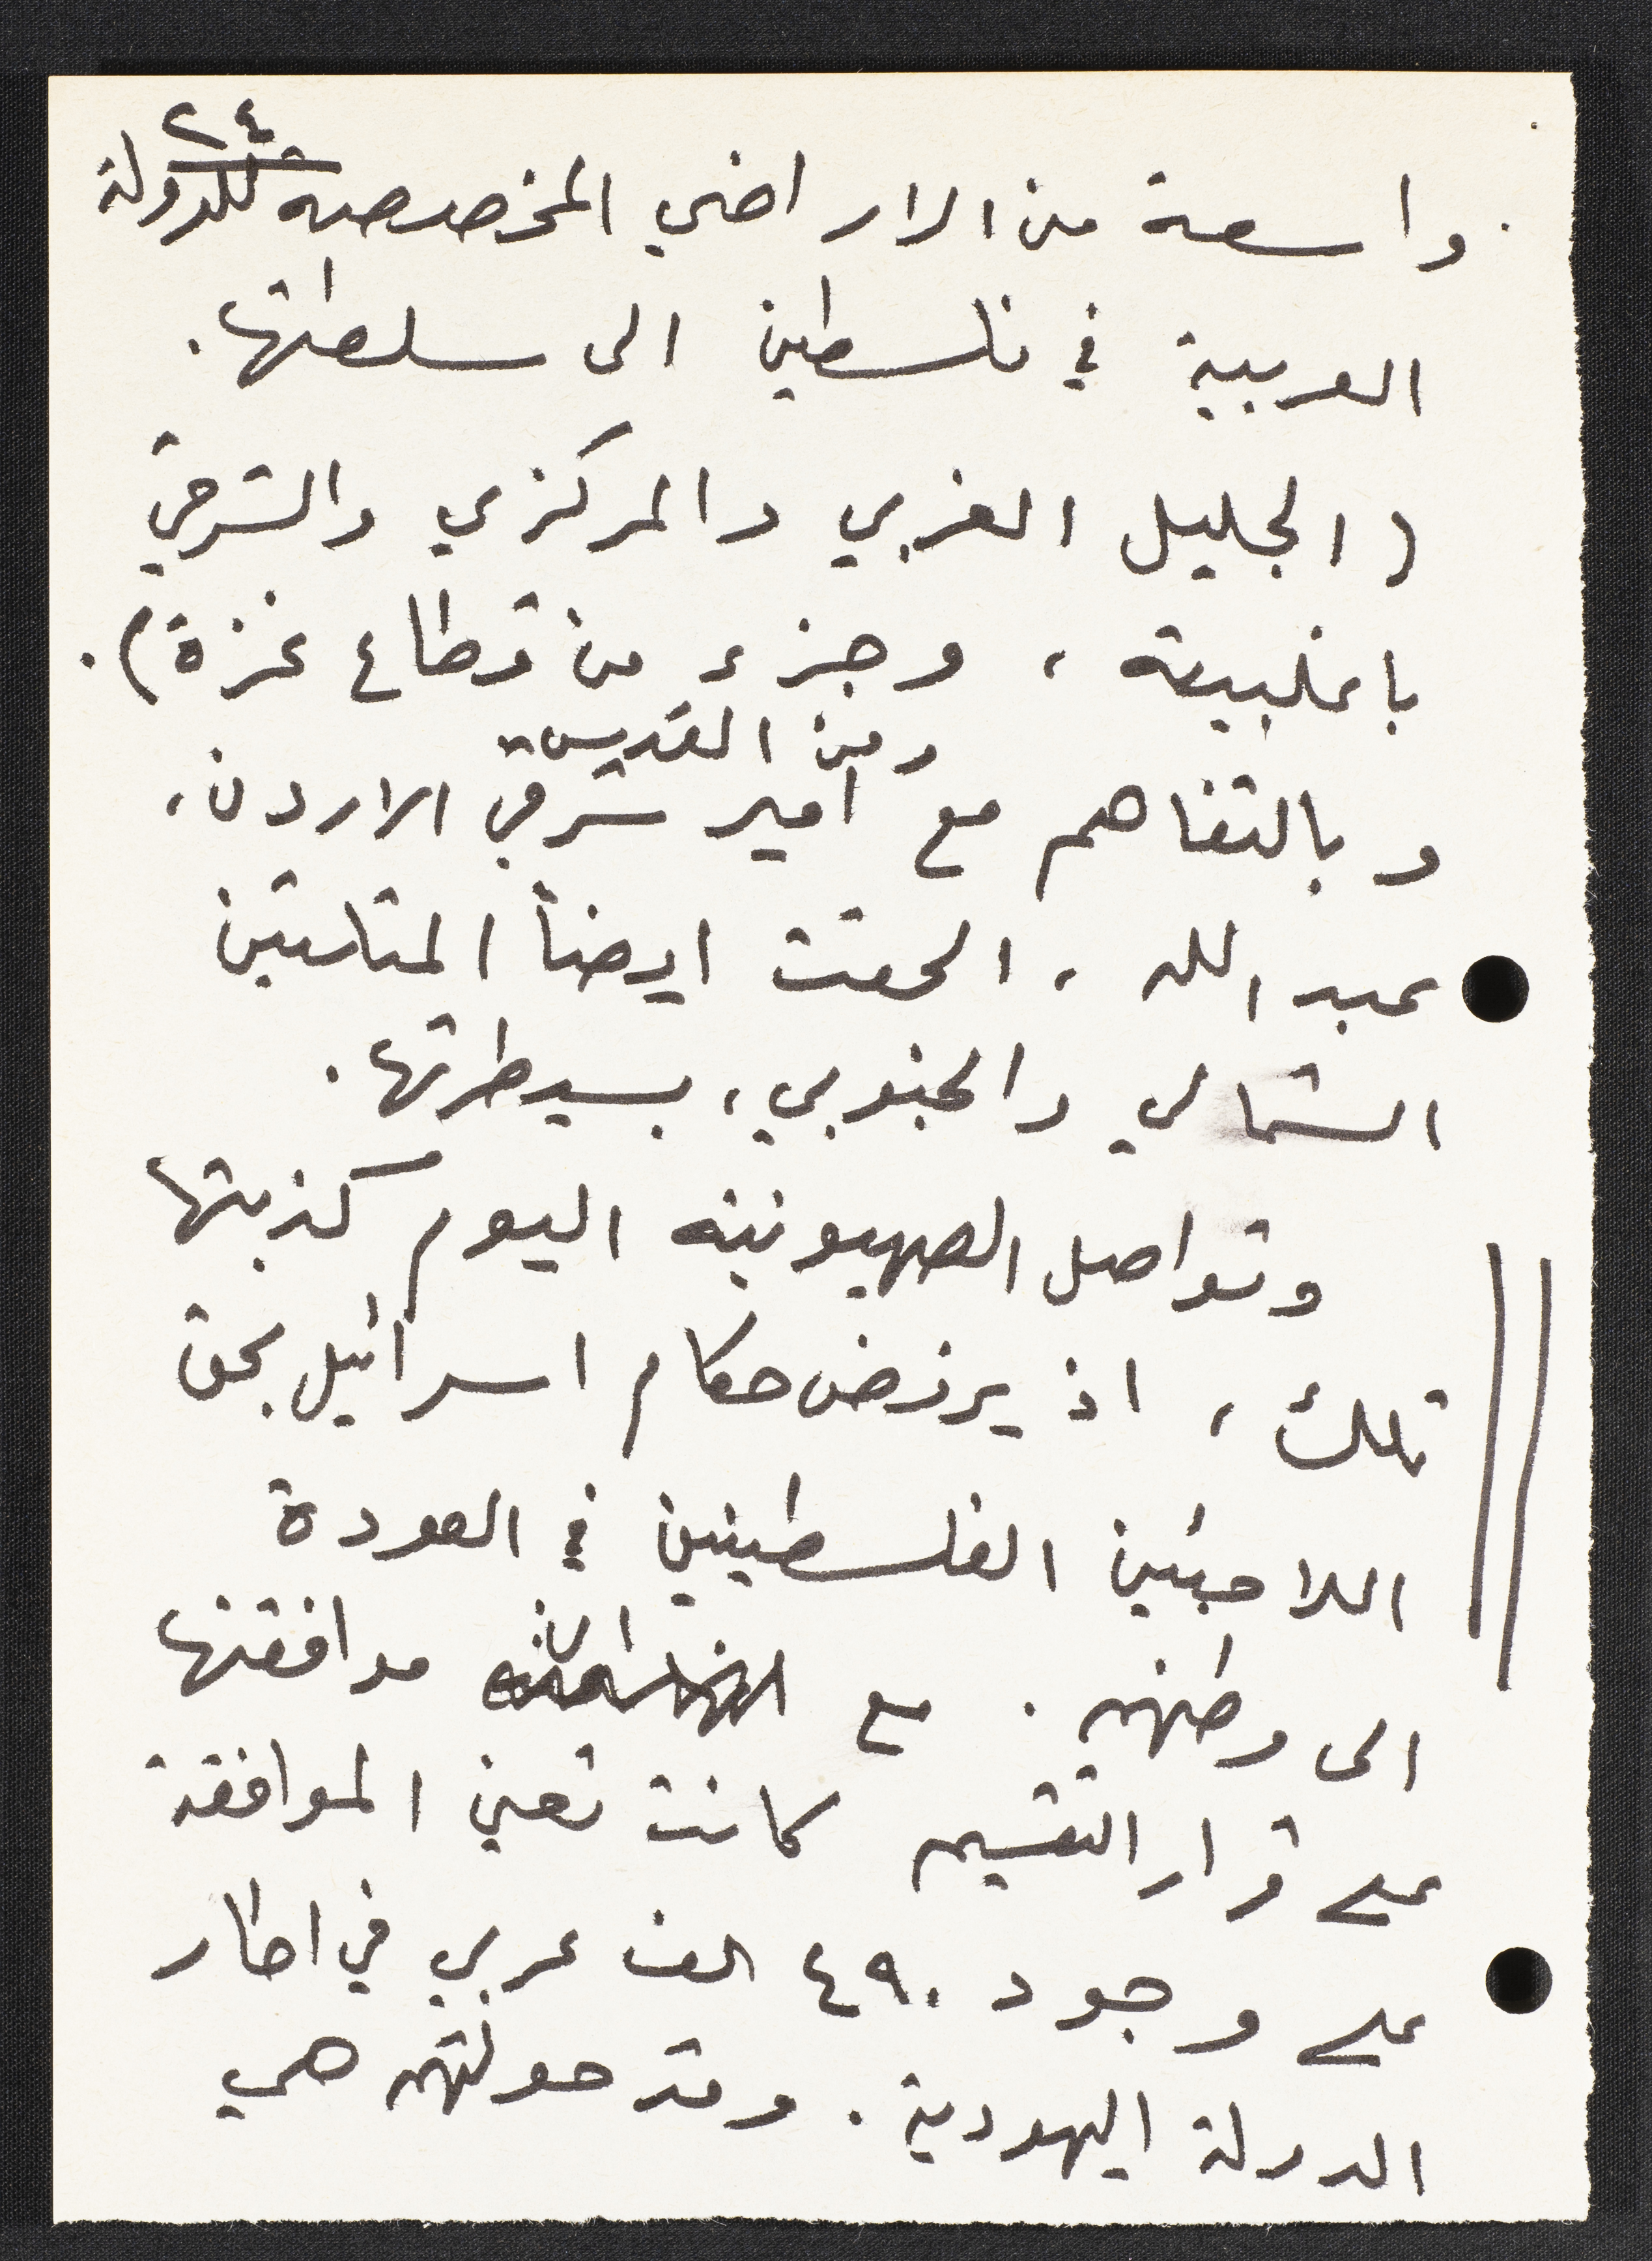 ٢٤
واسعة من الاراضي المخصصه للدولة
العربية في فلسطين الى سلطتها.
(الجليل الغربي والمركزي والشرقي
باغلبيته، وجزء من قطاع غزة).
ومن القدس
وبالتفاهم مع امير شرقي الاردن،
عبد الله، الحقت ايضاً المثلثين
الشمالي والجنوبي، بسيطرتها.
وتواصل الصهيونيه اليوم كذبتها
تلك، اذ يرفض حكام اسرائيل بحق
اللاجئين الفلسطينين في العودة
الى وطنهم. مع ان موافقتها
على قرار التقسيم كانت تعني الموافقة
على وجود ٤٩٠ الف عربي في اطار
الدولة اليهودية. وقد حولتهم هي